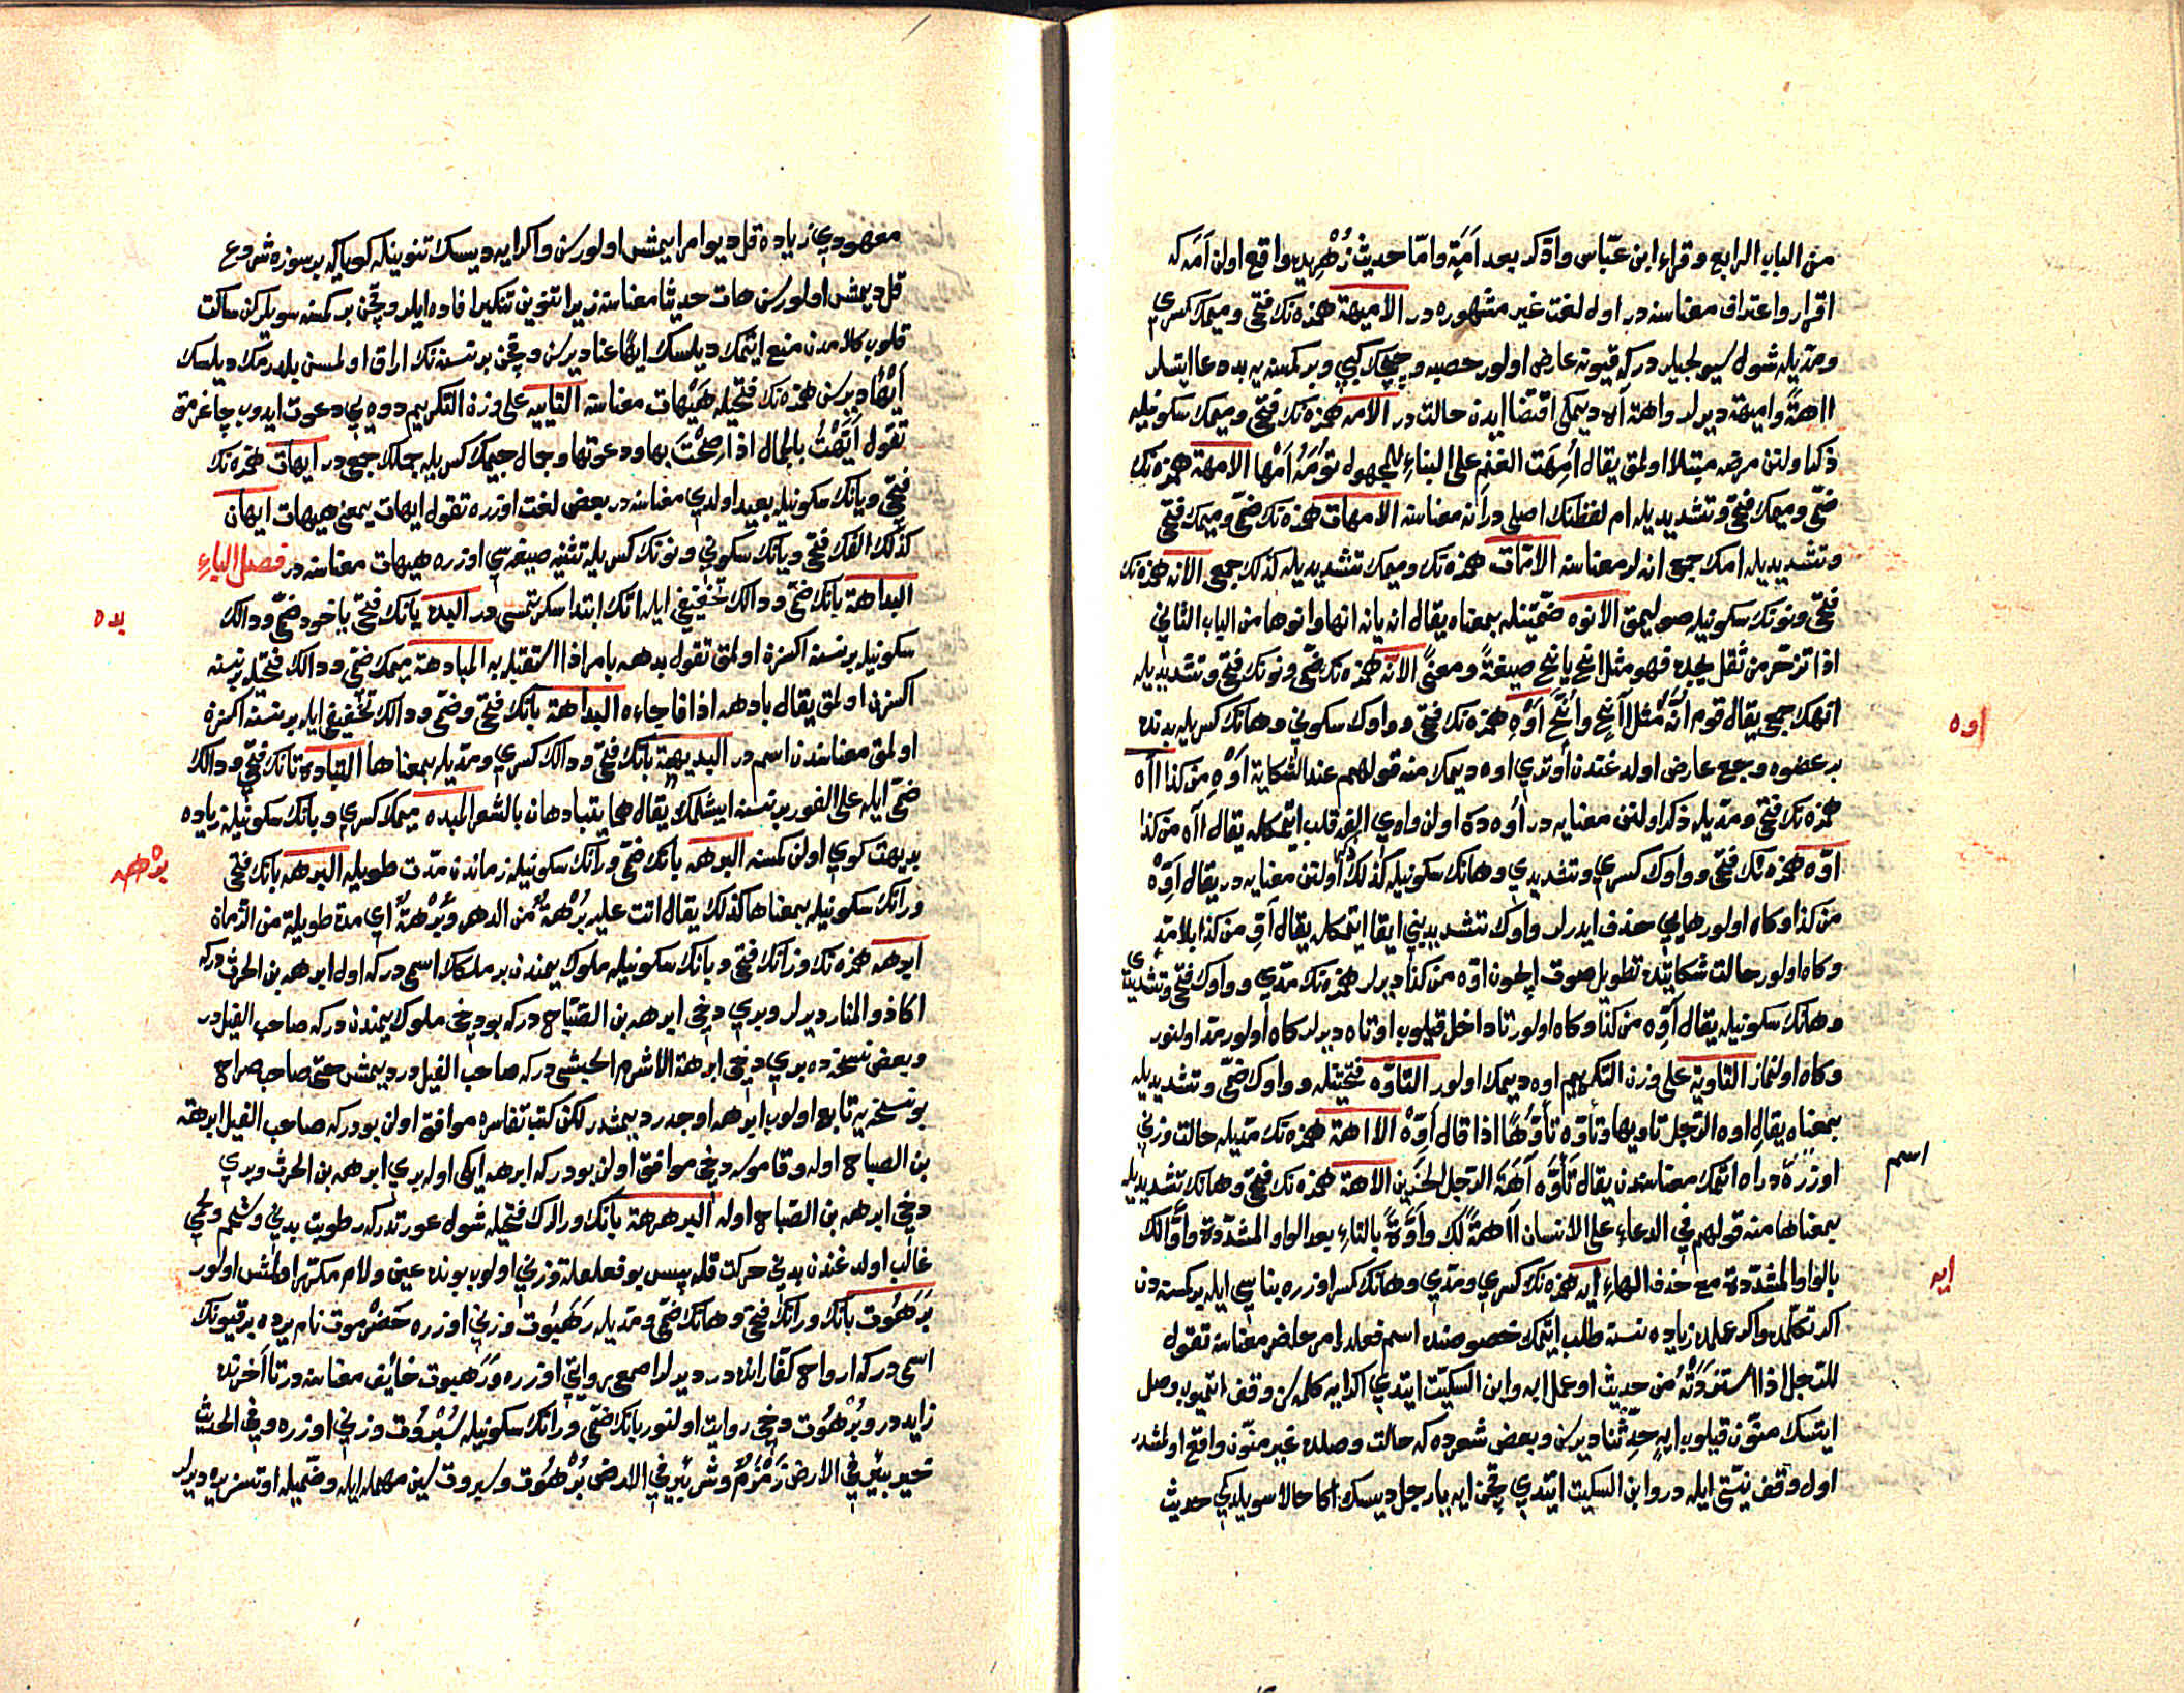 من الباب الرابع وقراء ابن عبّاس واذكر بعد اَمَةٍ وامّا حديث زُهْرِيده واقع اولن اَمَه كه
اقرار واعتراف معناسنه در اول لغت غير مشهوره در الاميهة همزه نك فتحى وميمك كسرى
ومدّيله شول سيولجيلر در كه قيونه عارض اولور حصبه وچيچك كبى وبر كمسنه يه بد دعا ايتسلر
ااهةً واميهة ديرلر واهة آه ديمكى اقتضا ايدن حالت در الامه همزه نك فتحى وميمك سكونيله
ذكر اولنن مرضه مبتلا اولمق يقال اُمِهَت الغنم على البناء للمجهول تؤمه اَمْها الامهة همزه نك
ضمّى وميمك فتحى وتشديديله ام لفظنك اصلى در انه معناسنه الامهات همزه نك ضمّى وميمك فتحى
وتشديديله امك جمع انه لر معناسنه الامّات همزه نك وميمك تشديديله كذلك جمعى الانه همزه نك
فتحى ونونك سكونيله صوليمق الانوه ضمّتينله بمعناه يقال انه يانه انها وانوها من الباب الثانى
اذا تزحّر من ثقل يجده فهو مثل انح يانح صيغةً ومعنىً الانّه همزه نك ضمّى ونونك فتحى وتشديديله
انهك جمعى يقال قوم اُنَّه مثل اَنّح واُنَّح اَوْهِ همزه نك فتحى وواوك سكونى وهانك كسريله بدنده
بر عضوه وجع عارض اولدغندن اوتدى اوه ديمك منه قولهم عند الشكاية اَوْهِ من كذا ااه
همزه نك فتحى ومدّيله ذكر اولنن معنايه در اوه ده اولن واوى الفه قلب ايتمكله يقال ااه من كذا
اوّه همزه نك فتحى وواوك كسرى وتشديدى وهانك سكونيله كذلك اولنن معنايه در يقال اَوِّهْ
من كذا وكاه اولور هايى حذف ايدرلر واوك تشديدينى ابقا ايتمكله يقال اَوِّ من كذا بلا مدّ
وكاه اولور حالت شكايتده تطويل صوت ايچون اوّه من كذا ديرلر همزه نك مدّى وواوك فتحى وتشديدى
وهانك سكونيله يقال آوَّه من كذا وكاه اولور تا داخل قيلوب اوتاه ديرلر كاه اولور مدّ اولنور
وكاه اولنماز التاويه على وزن التكريم اوه ديمك اولور التاوّه فتحتيله وواوك ضمّى وتشديديله
بمعناه يقال اوه الرّجل تاويها وتأوّه تأوّهًا اذا قال اَوّهْ الااهة همزه نك مدّيله حالت وزنى
اوزره در اه ايتمك معناسندن يقال تَأَوَّهَ آهَةَ الرّجل الحزين الاهة همزه نك فتحى وهانك تشديديله
بمعناها منه قولهم فى الدعاء على الانسان ااهةً لك واَوَّةً بالتاء بعد الواو المشدّدة واوّالك
بالواو المشدّدة مع حذف الهاء ايه همزه نك كسرى ومدّى وهانك كسر اوزره بناسى ايله بر كمسه دن
اكر تكلّمده واكر عملده زياده نسنه طلب ايتمك خصوصنده اسم فعلدر امر حاضر معناسنه تقول
للرّجل اذا استزدته من حديث او عمل ايه وابن السكيّت ايتدى اكر ايه كلمه سن وقف ايتميوب وصل
ايتسك منوّن قيلوب ايهٍ حدّثنا ديرسن وبعض شعرده كه حالت وصلده غير منوّن واقع اولمشدر
اول وقف نيّتى ايله در وابن السكيت ايتدى چن ايه يا رجل ديسك اكا حالا سويلدكى حديث
اوه
اسم
ايه
معهودى زياده قل ديو امر ايتمش اولورسن واكر ايهٍ ديسك تنوينله كويا كه بر سوزه شروع
قل ديمش اولورسن هات حديثا معناسنه زيرا تنوين تنكير افاده ايلر وچن بر كمسه سويلركن ساكت
قلوب كلامدن منع ايتمك ديلسك ايهًا عنا ديرسن وچن بر نسنه نك اراق اولمسن بلدرمك ديلسك
اَيْهًا ديرسن همزه نك فتحيله هَيْهات معناسنه التاييه على وزن التكريم دوه يى دعوت ايدوب چاغرمق
تقول اَيَّهْتُ بالجمال اذا صِحْتَ بها ودعوتها وجمال جيمك كسريله جملك جمعى در ايهات همزه نك
فتحى ويانك سكونيله بعيد اولدى معناسنه در بعض لغت اوزره تقول ايهات بمعنى هيهات ايهان
كذلك الفك فتحى ويانك سكونى ونونك كسريله تثنيه صيغه سى اوزره هيهات معناسنه در فصل الباءِ
البداهة بانك ضمّى ودالك تخفيفى ايله اتك ابتدا سكرتمسى در البده بانك فتحى يا خود ضمّى ودالك
سكونيله بر نسنه اكسزه اولمق تقول بدهه بامر اذا استقبله به المبادهة ميمك ضمّى ودالك فتحيله بر نسنه
اكسزن اولمق يقال بادهه اذا فاجاءه البداهة بانك فتحى وضمّى ودالك تخفيفى ايله بر نسنه اكسزه
اولمق معناسندن اسم در البديهة بانك فتحى ودالك كسرى ومدّيله بمعناها التباده تانك فتحى ودالك
ضمّى ايله على الفور بر نسنه ايشلمك يقال هما يتبادهان بالشعر المبده ميمك كسرى وبانك سكونيله زياده
بديهت كوى اولن كمسنه البرهه بانك ضمّى ورانك سكونيله زماندن مدّت طويله البرهه بانك فتحى
ورانك سكونيله بمعناها كذلك يقال اتت عليه بُرْهةٌ من الدهر وبَرْهةٌ اى مدة طويلة من الزمان
ابرهه همزه نك ورانك فتحى وبانك سكونيله ملوك يمندن بر ملكك اسمى در كه اول ابرهه بن الحرث در كه
اكا ذو المنار ديرلر وبرى دخى ابرهه بن الصبّاح در كه بو دخى ملوك يمندن در كه صاحب الفيل در
وبعض نسخه ده برى دخى ابرهة الاشرم الحبشى در كه صاحب الفيل در ديمش حتى صاحب صراح
بو نسخه يه تابع اولوب ابرهه اوچدر ديمشدر لكن كتب تفاسيره موافق اولن بو در كه صاحب الفيل ابرهة
بن الصباح اوله وقاموسه دخى موافق اولن بو در كه ابرهه ايكى اوله برى ابرهه بن الحرث وبرى
دخى ابرهه بن الصّباح اوله البرهرهة بانك ورالرك فتحيله شول عورتدر كه رطوبت بدنى وشحم ولحمى
غالب اولدغندن بدنى حركت قله پس بو فعلعلة وزنى اولوب بونده عين ولام مكرّر اولمش اولور
بَرَهُوت بانك ورانك فتحى وهانك ضمّى ومدّيله رَهَبُوت وزنى اوزره حَضْرموت نام يرده بر قيونك
اسمى در كه ارواح كفّار انده در ديرلر اصمعى روايتى اوزره ورَهبوت خائف معناسنه در تا آخرنده
زايد در وبُرْهُوت دخى روايت اولنور بانك ضمّى ورانك سكونيله سُبْرُوت وزنى اوزره وفى الحديث
خير بئر فى الارض زَمْزَمُ وشر بئر فى الارض بُرْهُوت وسبروت سين مهمله ايله وضمّيله اوتسز يره ديرلر
بده
برهه